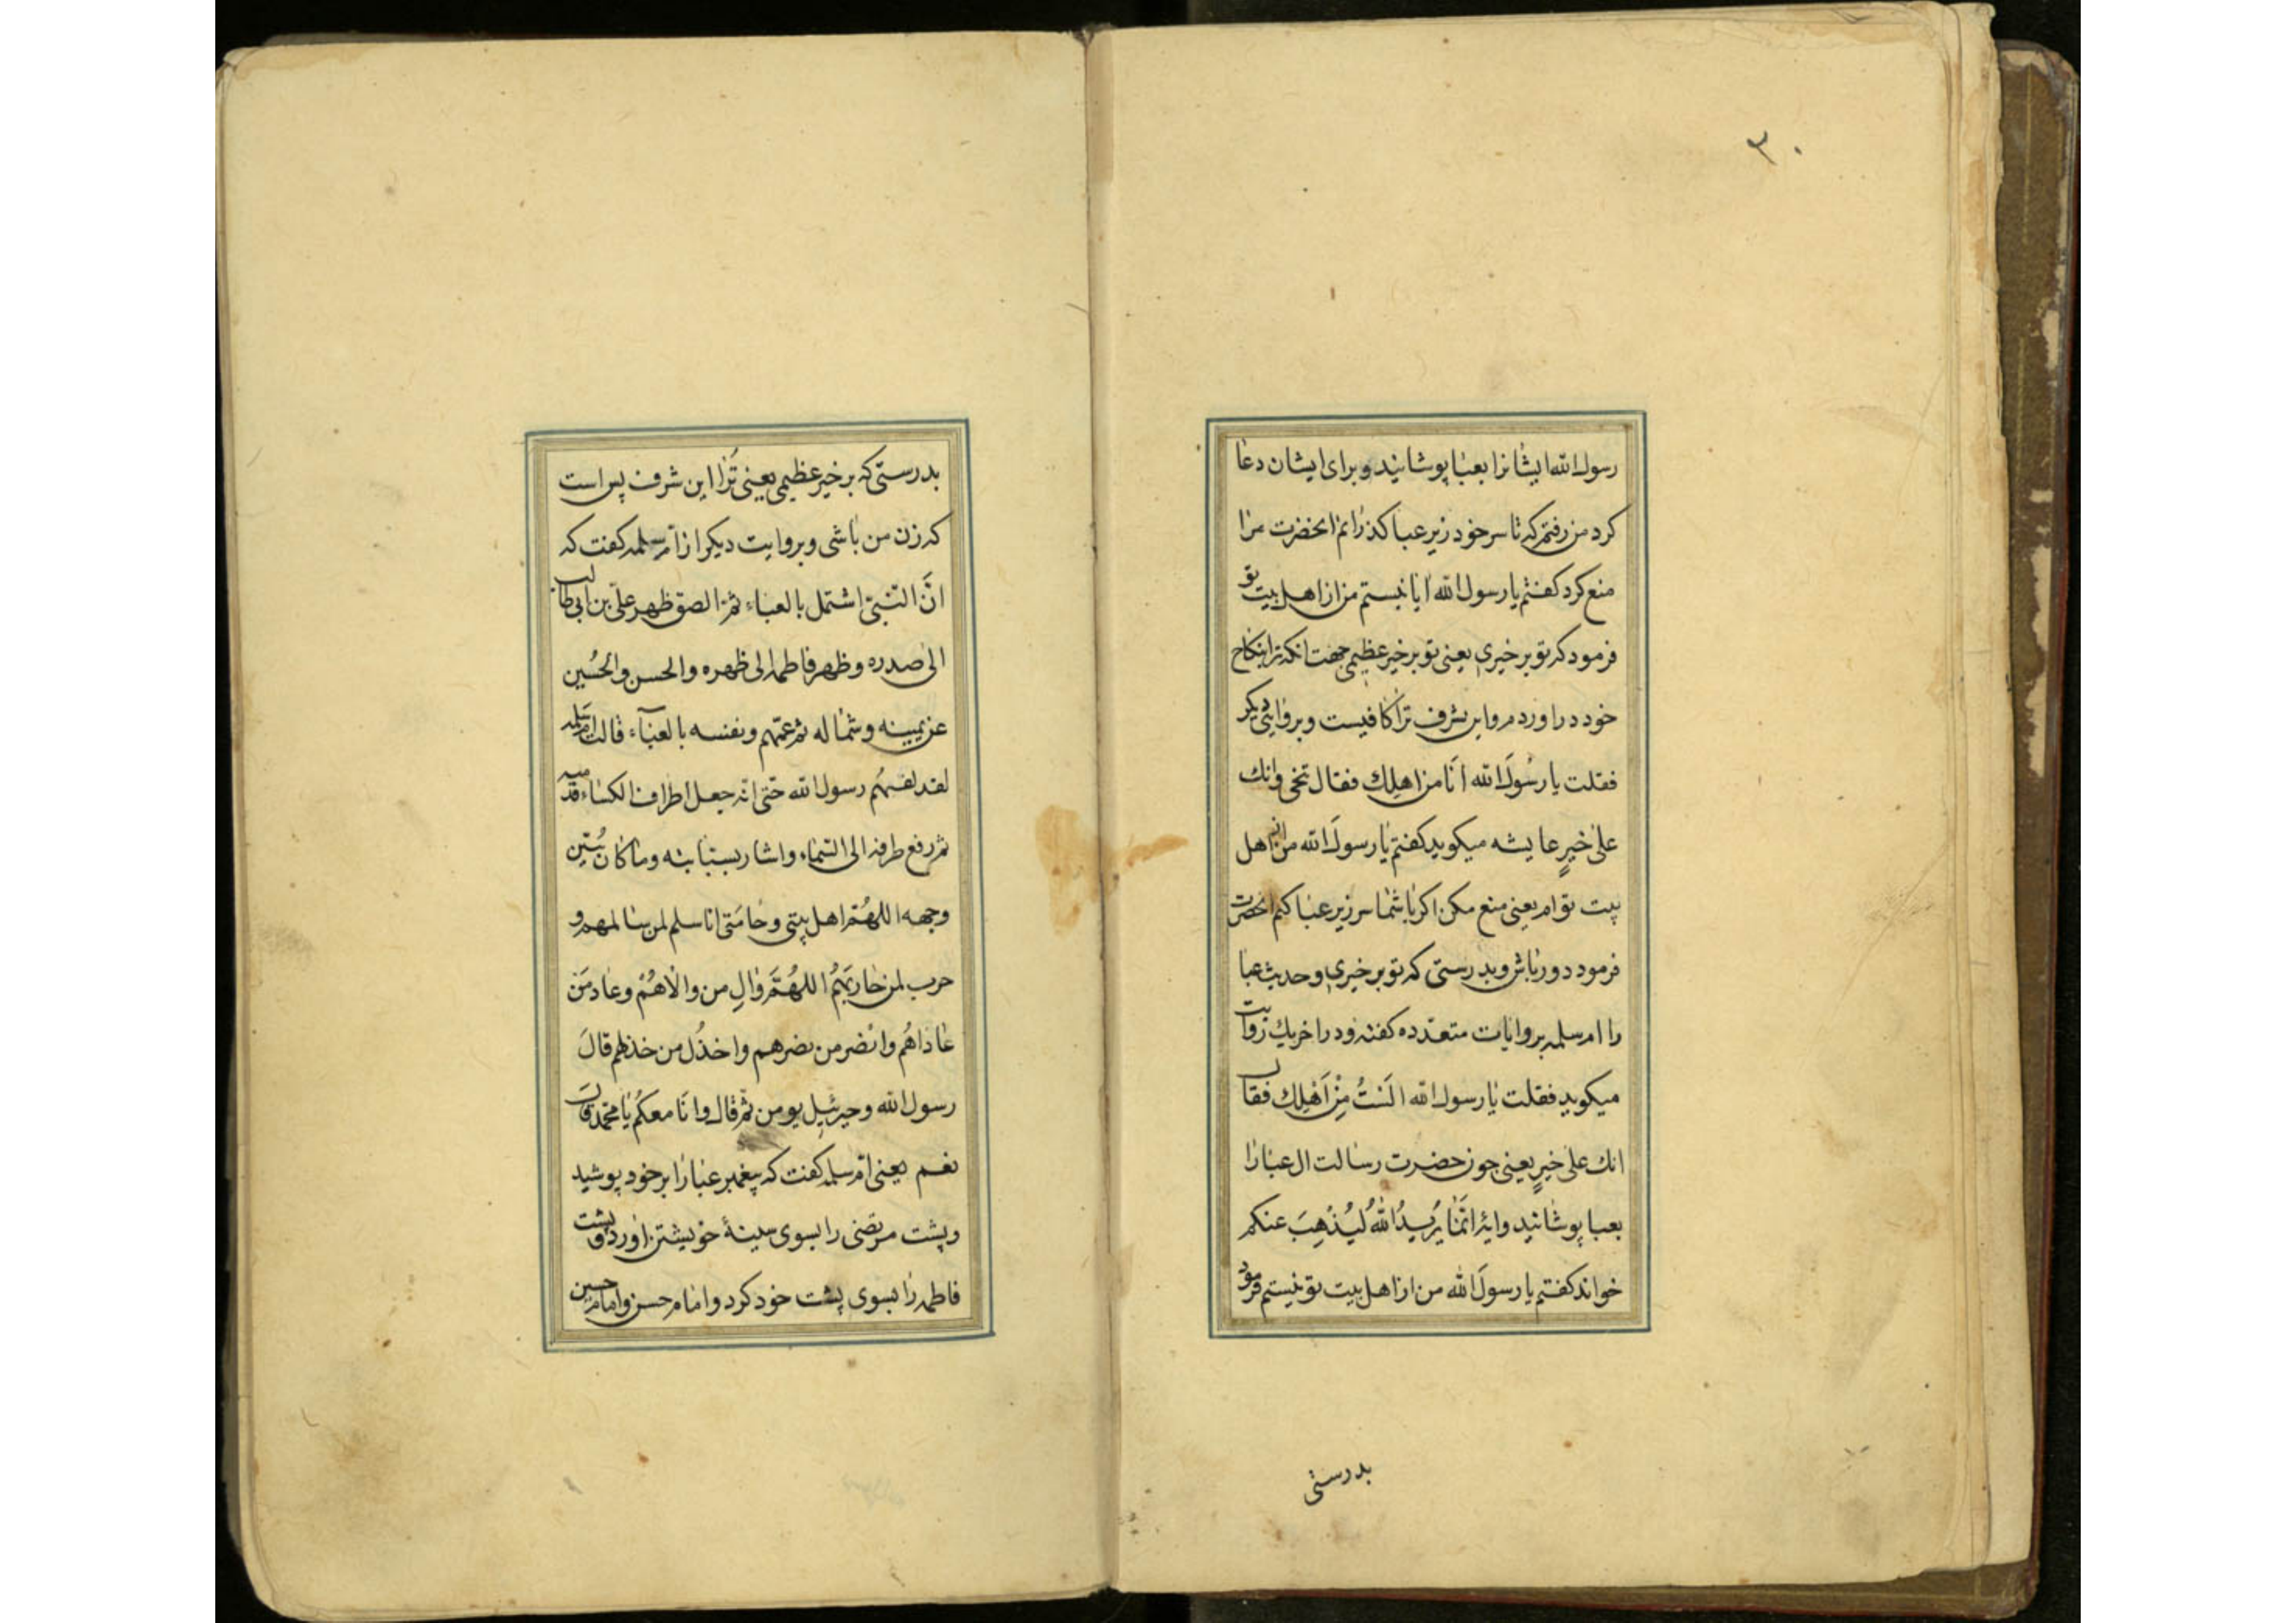 ۳۰
رسول الله ایشانرا بعبا پوشانید و برای ایشان دعا
کرد من رفتم که تا سر خود زیر عبا کذرانم انحضرت مرا
منع کرد کفتم یا رسول الله ایا نیستم من از اهل بیت تو
فرمود که تو بر خیری یعنی تو بر خیر عظیمی جهت انکه ترا بنکاح
خود در اوردم و این شرف ترا کافیست و بروایتی دیکر
فقلت یا رسُولَ الله اَنَا من اهلِك فقال تنحی وانك
علیٰ خیرٍ عایشه میکوید کفتم یا رسولَ الله من از اهل
بیت توام یعنی منع مکن اکر با شما سر زیر عبا کنم انحضرت
فرمود دور باش و بدرستی که تو بر خیری و حدیث عبا
را ام سلمه بروایات متعدّده کفته و در اخر یك روایت
میکوید فقلت یا رسول الله اَلَستُ مِنْ اَهْلِك فقال
انك علیٰ خیرٍ یعنی چون حضرت رسالت ال عبا را
بعبا پوشانید وایهٔ انّمٰا یُریدُ اللهُ لیُذْهِبَ عنکم
خواند کفتم یا رسولَ الله من از اهل بیت تو نیستم فرمود
بدرستی
بدرستی که بر خیر عظیمی یعنی تُرا این شرف بس است
که زن من باشی و بروایت دیکر از ام سلمه کفت که
انَّ النّبیّ اشتمل بالعباء ثمّ الصق ظهر علیّ بن ابی طالب
الیٰ صدره و ظهر فاطمه الی ظهره والحسن والحُسین
عن یمینه وشماله ثم عمّهم ونفسه بالعباء قالت ام سلمه
لقد لفهُم رسول الله حتی انّه جعل اطراف الکساء قدمیه
ثم رفع طرفه الی السّماء واشار بسبّابته وما کان یُبیّن
وجهه اللهُمّ اهل بیتی وحامتی انا سلم لمن سالمهم و
حرب لمن حاربَهُم اللهُمَّ وٰالِ من والٰاهُمْ وعٰاد مَن
عٰاداهُم وانْصر من نصرهم واخذُل من خذلهم قالَ
رسول الله وجبرئیل یومن ثمّ قال وانَا معکُم یٰا محمّد قال
نعم یعنی امّ سلمه کفت که پیغمبر عبا را بر خود پوشید
و پشت مرتضی را بسوی سینهٔ خویشتن اورد و پشت
فاطمه را بسوی پشت خود کرد و امام حسن و امام حسین